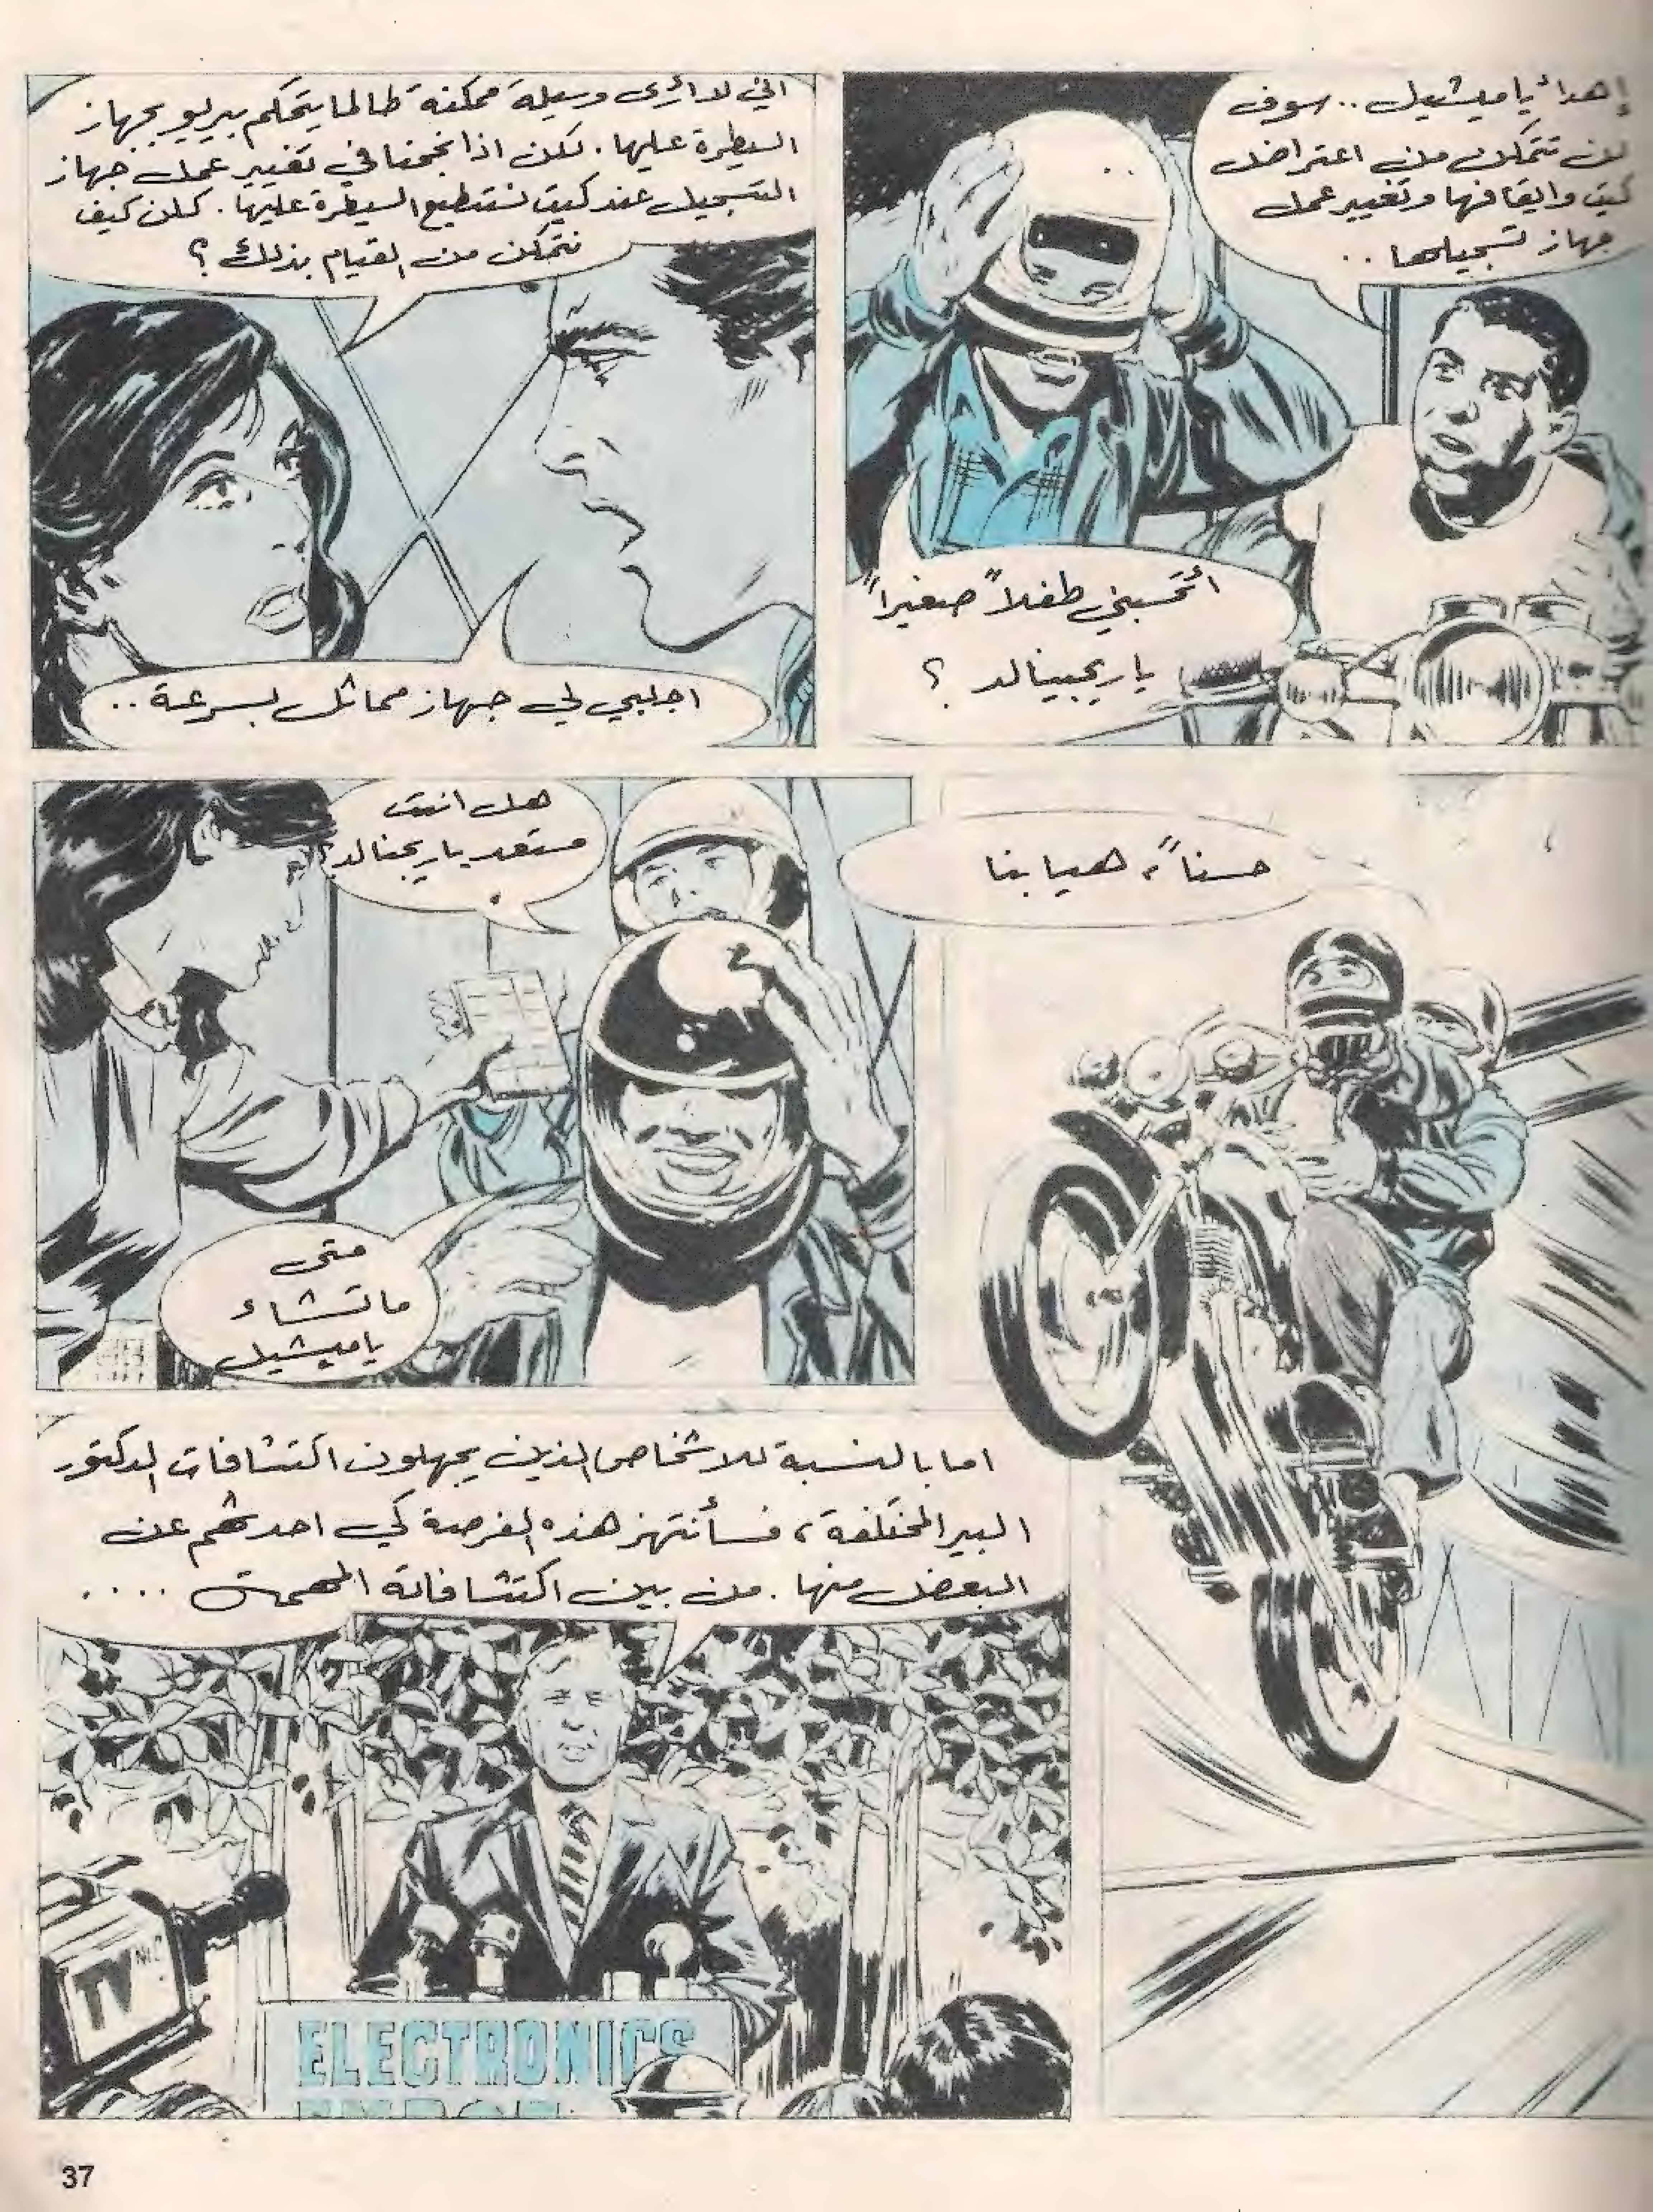 إهدأ ياميشيل .. سوف
لن تتمكن من اعتراض
كيت وايقافها وتغيير عمل
جهاز تسجيلها ..
أتحسبني طفلاً صغيراً
ياريجينالد ؟
اني لا أرى وسيلة ممكنة طالما يتحكم بيريو بجهاز
السيطرة عليها . لكن اذا نجحنا في تغيير عمل جهاز
التسجيل عند كيت نستطيع السيطرة عليها . كلن كيف
نتمكن من القيام بذلك ؟
اجلبي لي جهاز مماثل بسرعة ..
هل انت
مستعد ياريجنالد؟
متى
ماتشاء
ياميشيل
حسناً، هيا بنا
اما بالنسبة للاشخاص الذين يجهلون اكتشافات الدكتور
البير المختلفة، فسأنتهز هذه الفرصة كي احدثهم عن
البعض منها . من بين اكتشافاته المهمة ....
TV
ELECTRONICS
37